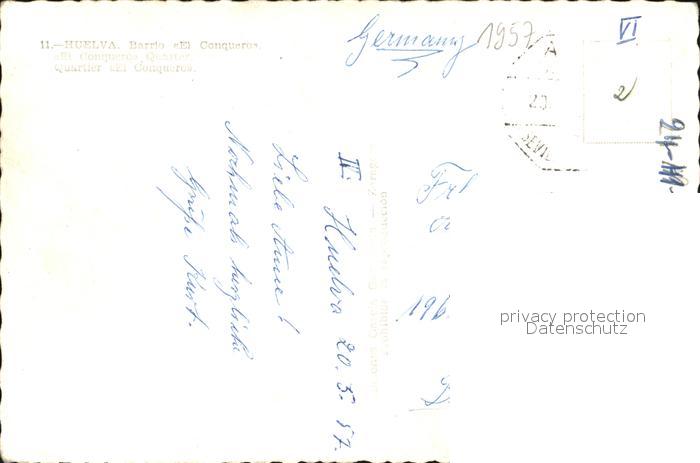 11.—HUELVA. Barrio «El Conquero».
«El Conquero» Quarter.
Quartier «El Conquero».
Germany
1957
VI
2
20.
SEVI
24-
II. Huelva 20.5.57.
Liebe Anne!
Nochmals herzliche
Grüße Kurt.
Frl
196
D.
privacy protection
Datenschutz